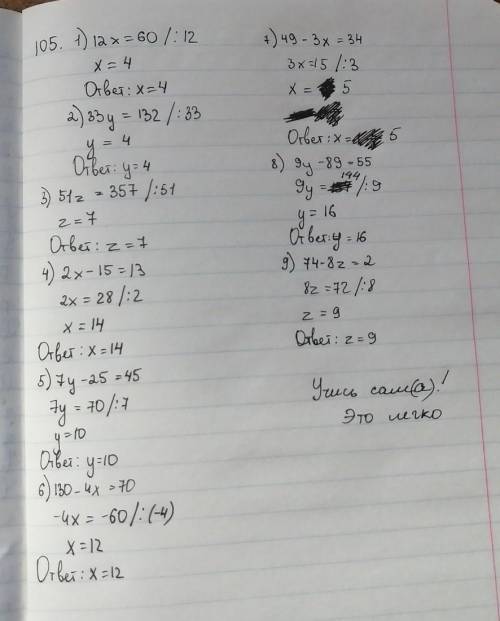 105. 1) 12x = 60 /: 12
x = 4
Ответ: x = 4
2) 33y = 132 /: 33
y = 4
Ответ: y = 4
3) 51z = 357 /: 51
z = 7
Ответ: z = 7
4) 2x - 15 = 13
2x = 28 /: 2
x = 14
Ответ: x = 14
5) 7y - 25 = 45
7y = 70 /: 7
y = 10
Ответ: y = 10
6) 130 - 4x = 70
-4x = -60 /: (-4)
x = 12
Ответ: x = 12
7) 49 - 3x = 34
3x = 15 /: 3
x = 5
Ответ: x = 5
8) 9y - 89 = 55
9y = 144 /: 9
y = 16
Ответ: y = 16
9) 74 - 8z = 2
8z = 72 /: 8
z = 9
Ответ: z = 9
Учись сам(а)!
Это легко